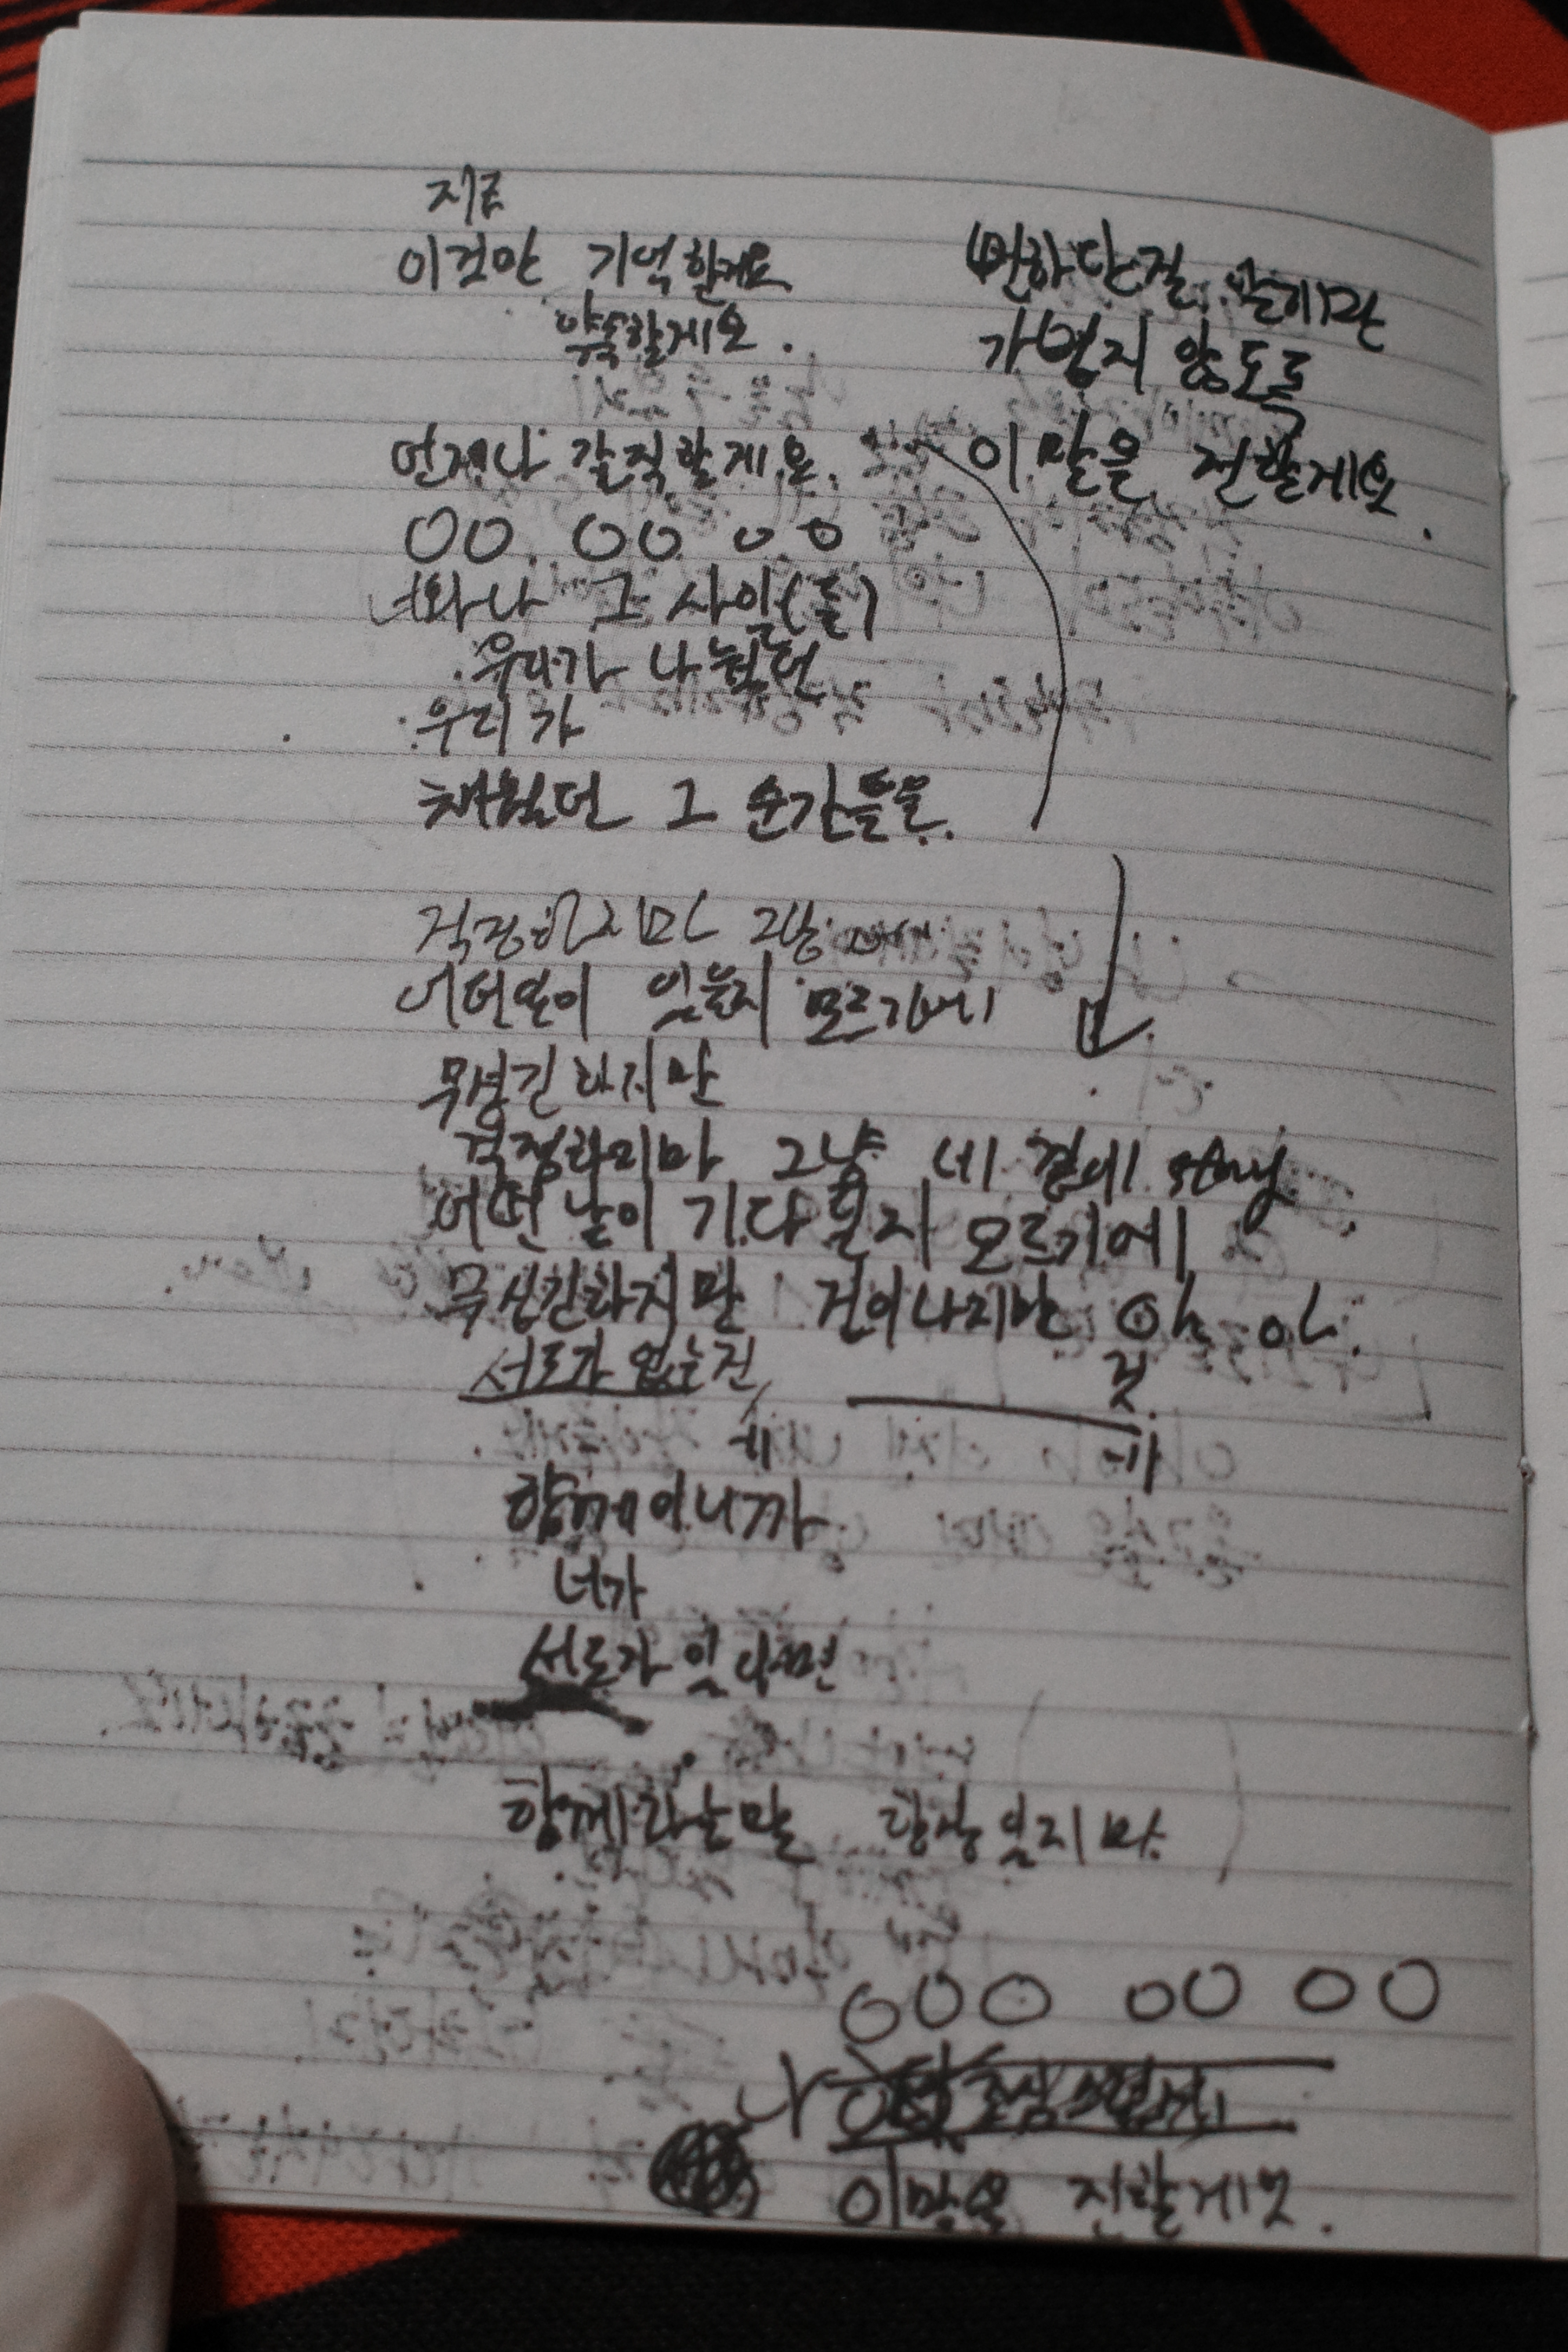 지금
이것만 기억할게요
약속할게요.
뻔하단 걸 알지만
가볍지 않도록
이 말을 전할게요.
언제나 간직할게요.
OO OO OO
너와나 그 사일(를)
우리가 나눴던
우리가
채웠던 그 순간들을.
걱정하지마 그냥
어떤일이 있을지 모르기에
무섭긴 하지만
걱정하지마 그냥 네 곁에 stay
어떤 날이 기다릴지 모르기에
무섭긴하지만 겁이나지만 oh oh.
서로가 없는건
것
게
함께이니까
너가
서로가 있다면
함께라는말
OOO OO OO
이말을 전할게요.